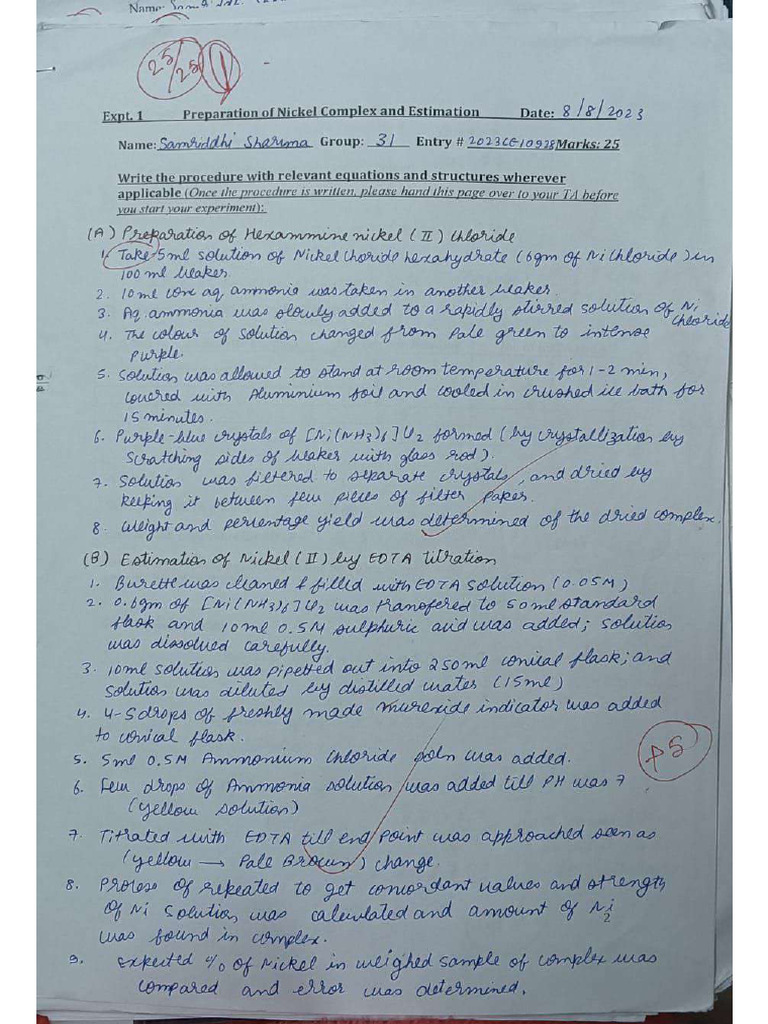 Name:
25/25
Expt. 1 Preparation of Nickel Complex and Estimation Date: 8/8/2023
Name: Samriddhi Sharma Group: 31 Entry # 2023CE10928 Marks: 25
Write the procedure with relevant equations and structures wherever
applicable (Once the procedure is written, please hand this page over to your TA before
you start your experiment):
(A) Preparation of Hexammine nickel (II) Chloride
1. Take 5ml solution of Nickel Choride hexahydrate (6gm of Ni Chloride) in
100 ml beaker.
2. 10 ml conc aq. ammonia was taken in another beaker.
3. Aq. ammonia was slowly added to a rapidly stirred solution of Ni
chloride
4. The colour of solution changed from Pale green to intense
purple.
5. Solution was allowed to stand at room temperature for 1-2 min,
covered with Aluminium foil and cooled in crushed ice bath for
15 minutes.
6. Purple-blue crystals of [Ni(NH3)6]Cl2 formed (by crystallization by
scratching sides of beaker with glass rod).
7. Solution was filtered to separate crystals, and dried by
keeping it between few pieces of filter paper.
8. Weight and percentage yield was determined of the dried complex.
(B) Estimation of Nickel (II) by EDTA titration
1. Burette was cleaned & filled with EDTA solution (0.05M)
2. 0.6gm of [Ni(NH3)6]Cl2 was transfered to 50ml standard
flask and 10ml 0.5M sulphuric acid was added; solution
was dissolved carefully.
3. 10ml solution was pipetted out into 250ml conical flask; and
solution was diluted by distilled water (15ml)
4. 4-5 drops of freshly made murexide indicator was added
to conical flask.
5. 5ml 0.5M Ammonium Chloride soln was added.
6. Few drops of Ammonia solution was added till PH was 7
(yellow solution)
7. Titrated with EDTA till end point was approached seen as
(yellow → Pale Brown) change.
8. Process of repeated to get concordant values and strength
of Ni solution was calculated and amount of Ni
was found in complex.
9. Expected % of Nickel in weighed sample of complex was
compared and error was determined.